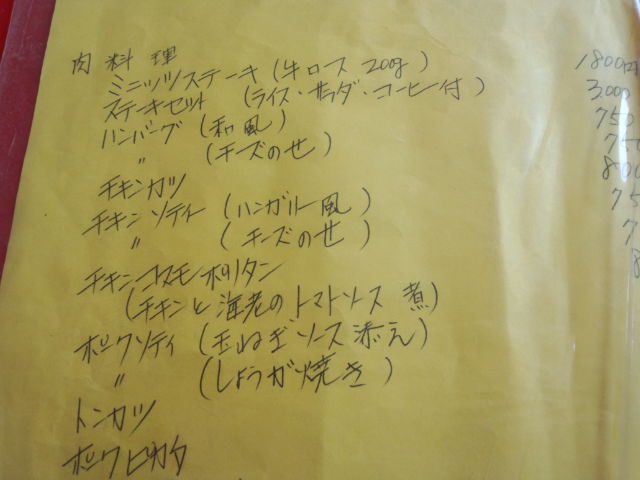 肉料理
ミニッツステーキ (牛ロース 200g) 1800円
ステーキセット (ライス・サラダ・コーヒー付) 3,000
ハンバーグ (和風) 750
〃 (チーズのせ) 750
チキンカツ 800
チキンソティー (ハンガリー風) 75
〃 (チーズのせ) 7
チキンコスモポリタン 8
(チキンと海老のトマトソース煮)
ポークソティ (玉ねぎソース添え)
〃 (しょうが焼き)
トンカツ
ポークピカタ